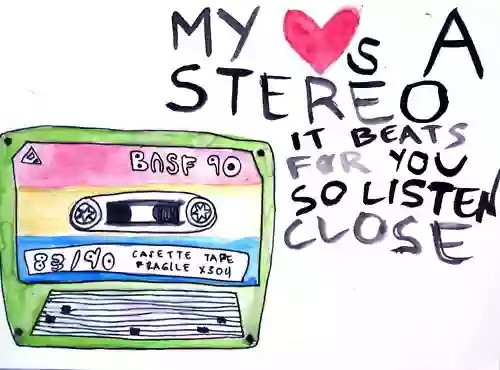 MY ❤S A
STEREO
IT BEATS
FOR YOU
SO LISTEN
CLOSE
BASF 90
83/90
CASETTE TAPE
FRAGILE X304